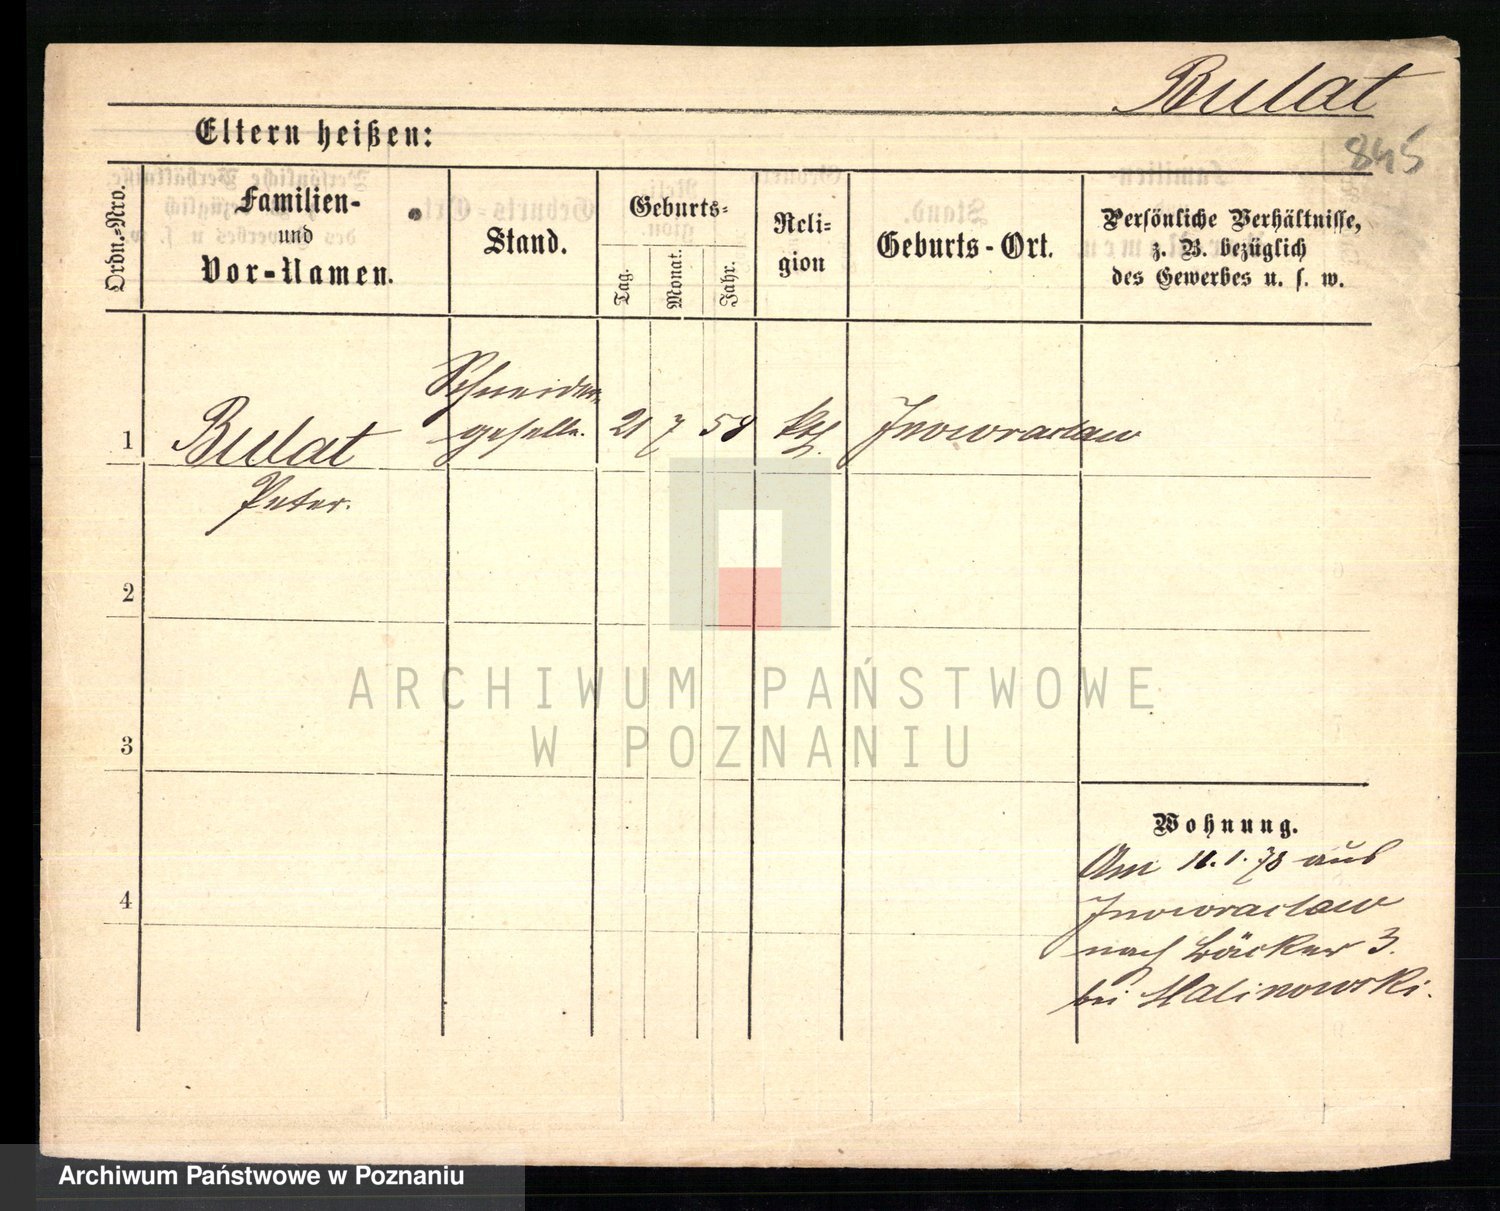 Bulat
845
Eltern heißen:
Ordn.-Nro.
Familien-
und
Vor-Namen.
Stand.
Geburts-
Tag.
Monat.
Jahr.
Reli-
gion
Geburts-Ort.
Persönliche Verhältnisse,
z. B. bezüglich
des Gewerbes u. s. w.
Schneider-
1 Bulat geselle. 21 7 58 kth. Inowraclaw
Peter.
2
3
4
Wohnung.
Am 11.1.78 aus
Inowraclaw
nach Bäcker 3.
bei Malinowski.
ARCHIWUM PAŃSTWOWE
W POZNANIU
Archiwum Państwowe w Poznaniu